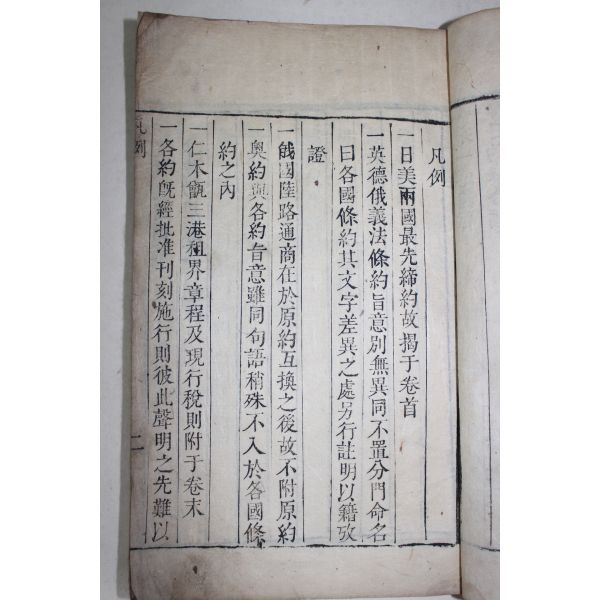 凡例
一日美兩國最先締約故揭于卷首
一英德俄義法條約旨意別無異同不置分門命名
曰各國條約其文字差異之處另行註明以籍攷
證
一俄國陸路通商在於原約互換之後故不附原約
一奧約與各約旨意雖同句語稍殊不入於各國條
約之內
一仁本甑三港租界章程及現行稅則附于卷末
一各約旣經批准刊刻施行則彼此聲明之先難以
凡例
二